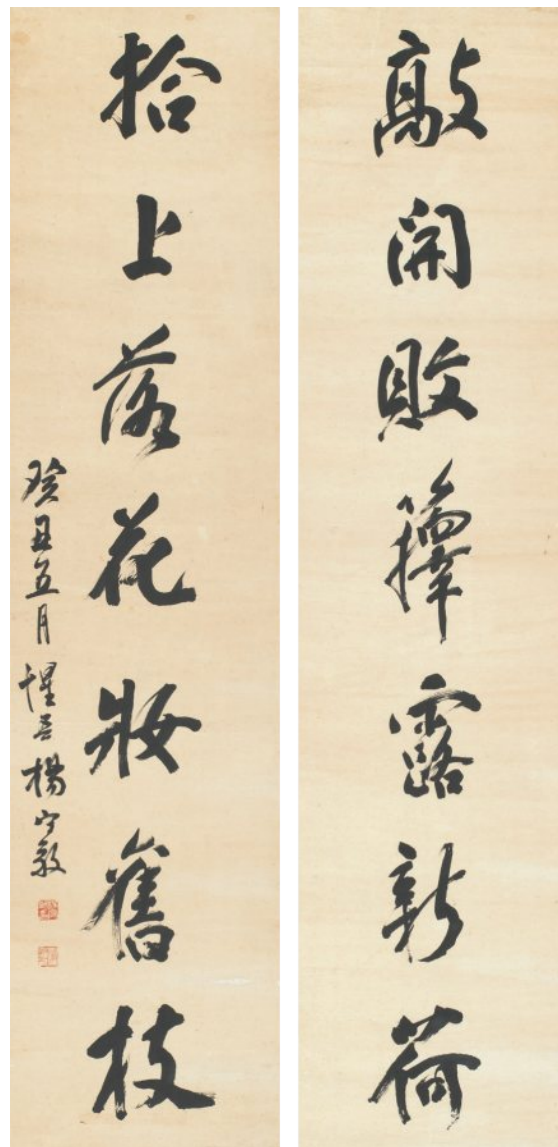 敲開敗籜露新荷
拾上落花妝舊枝
癸丑五月惺吾楊守敬